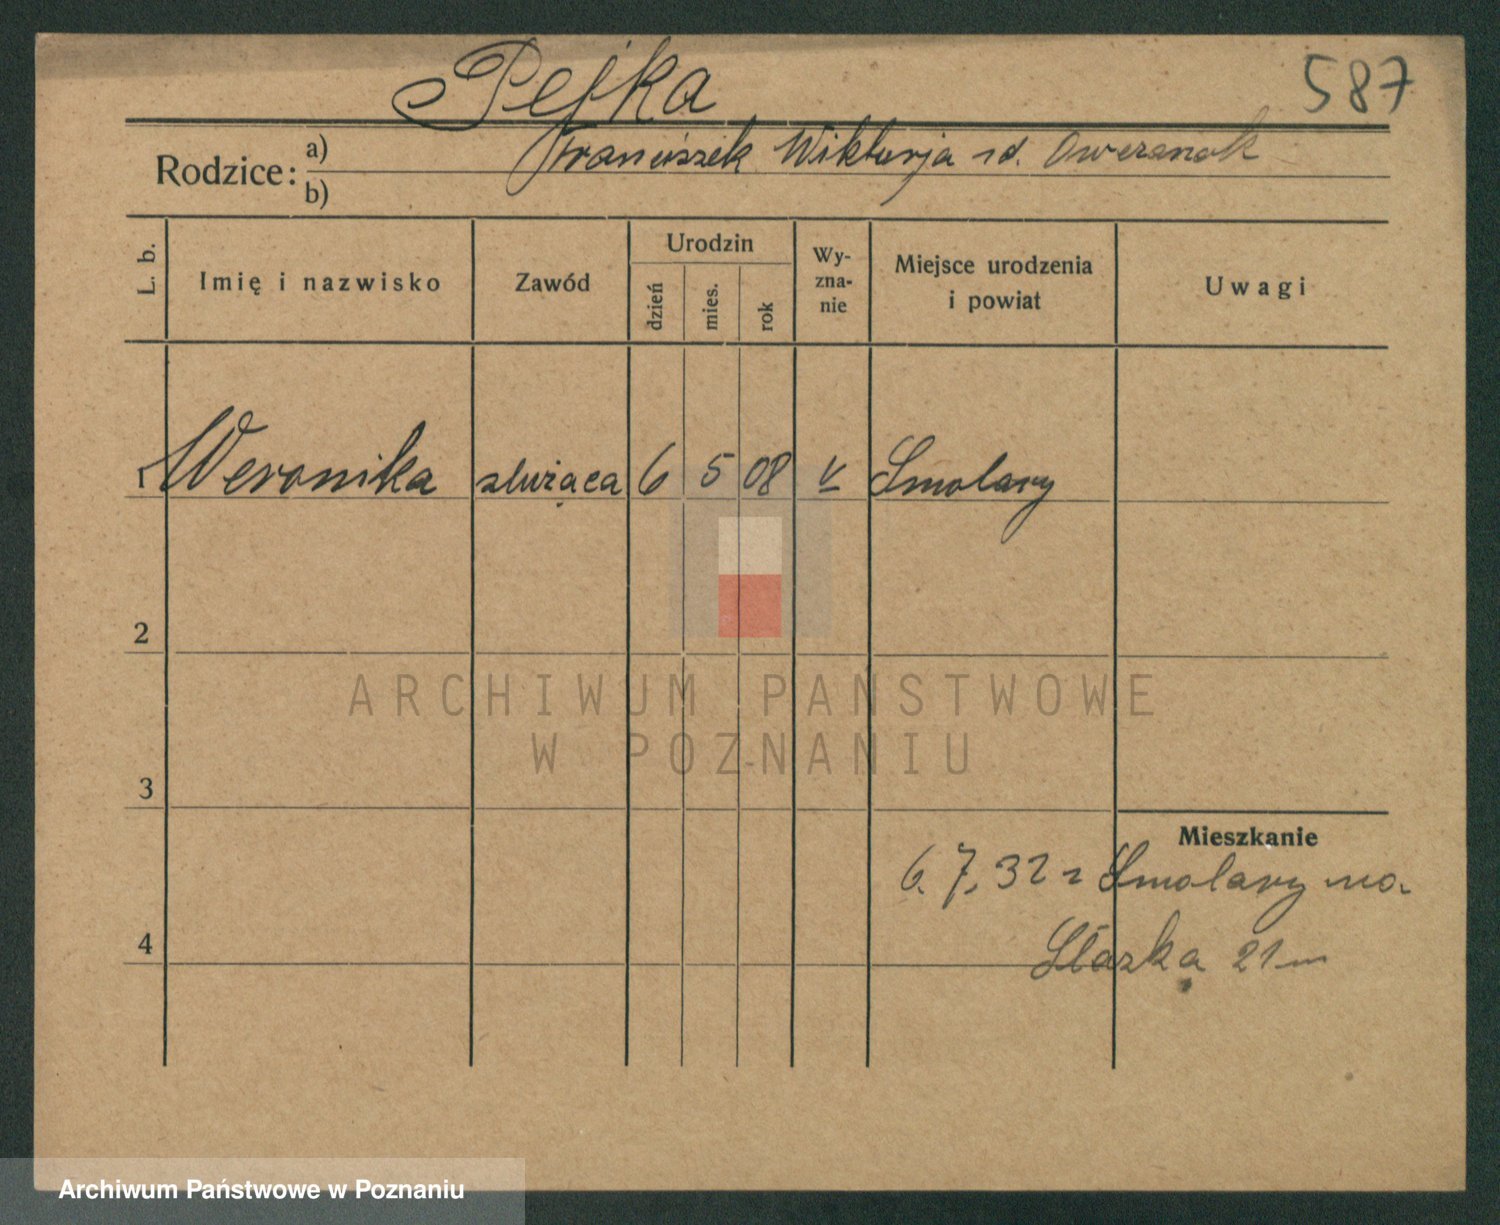 Pejka
587
Rodzice: a) Franciszek Wiktorja zd. Owczarzak
b)
L. b.
Imię i nazwisko
Zawód
Urodzin
dzień
mies.
rok
Wy-
zna-
nie
Miejsce urodzenia
i powiat
Uwagi
1 Weronika służąca 6 5 08 Smolary
2
ARCHIWUM PAŃSTWOWE
W POZNANIU
3
Mieszkanie
6. 7. 32 z Smolary na
4
21 m
Archiwum Państwowe w Poznaniu